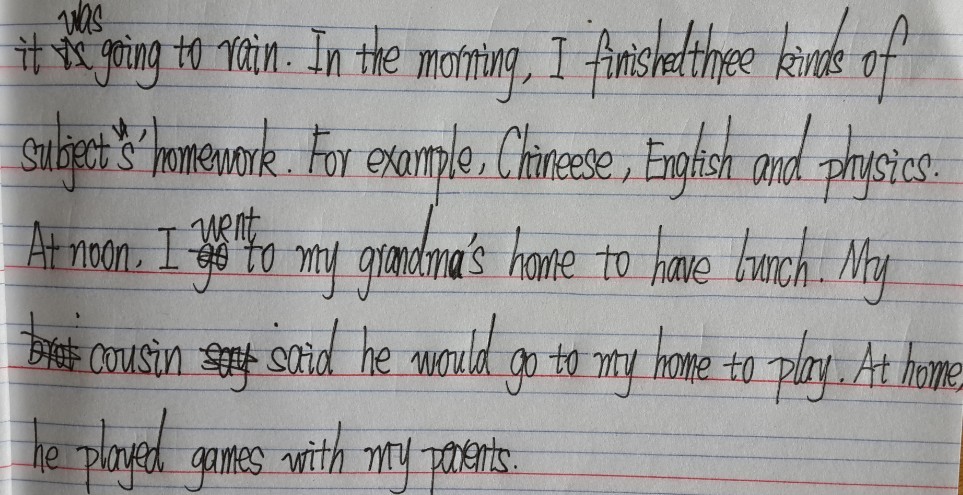 it was going to rain. In the morning, I finished three kinds of
subjects' homework. For example, Chineese, English and physics.
At noon, I went to my grandma's home to have lunch. My
cousin said he would go to my home to play. At home,
he played games with my parents.